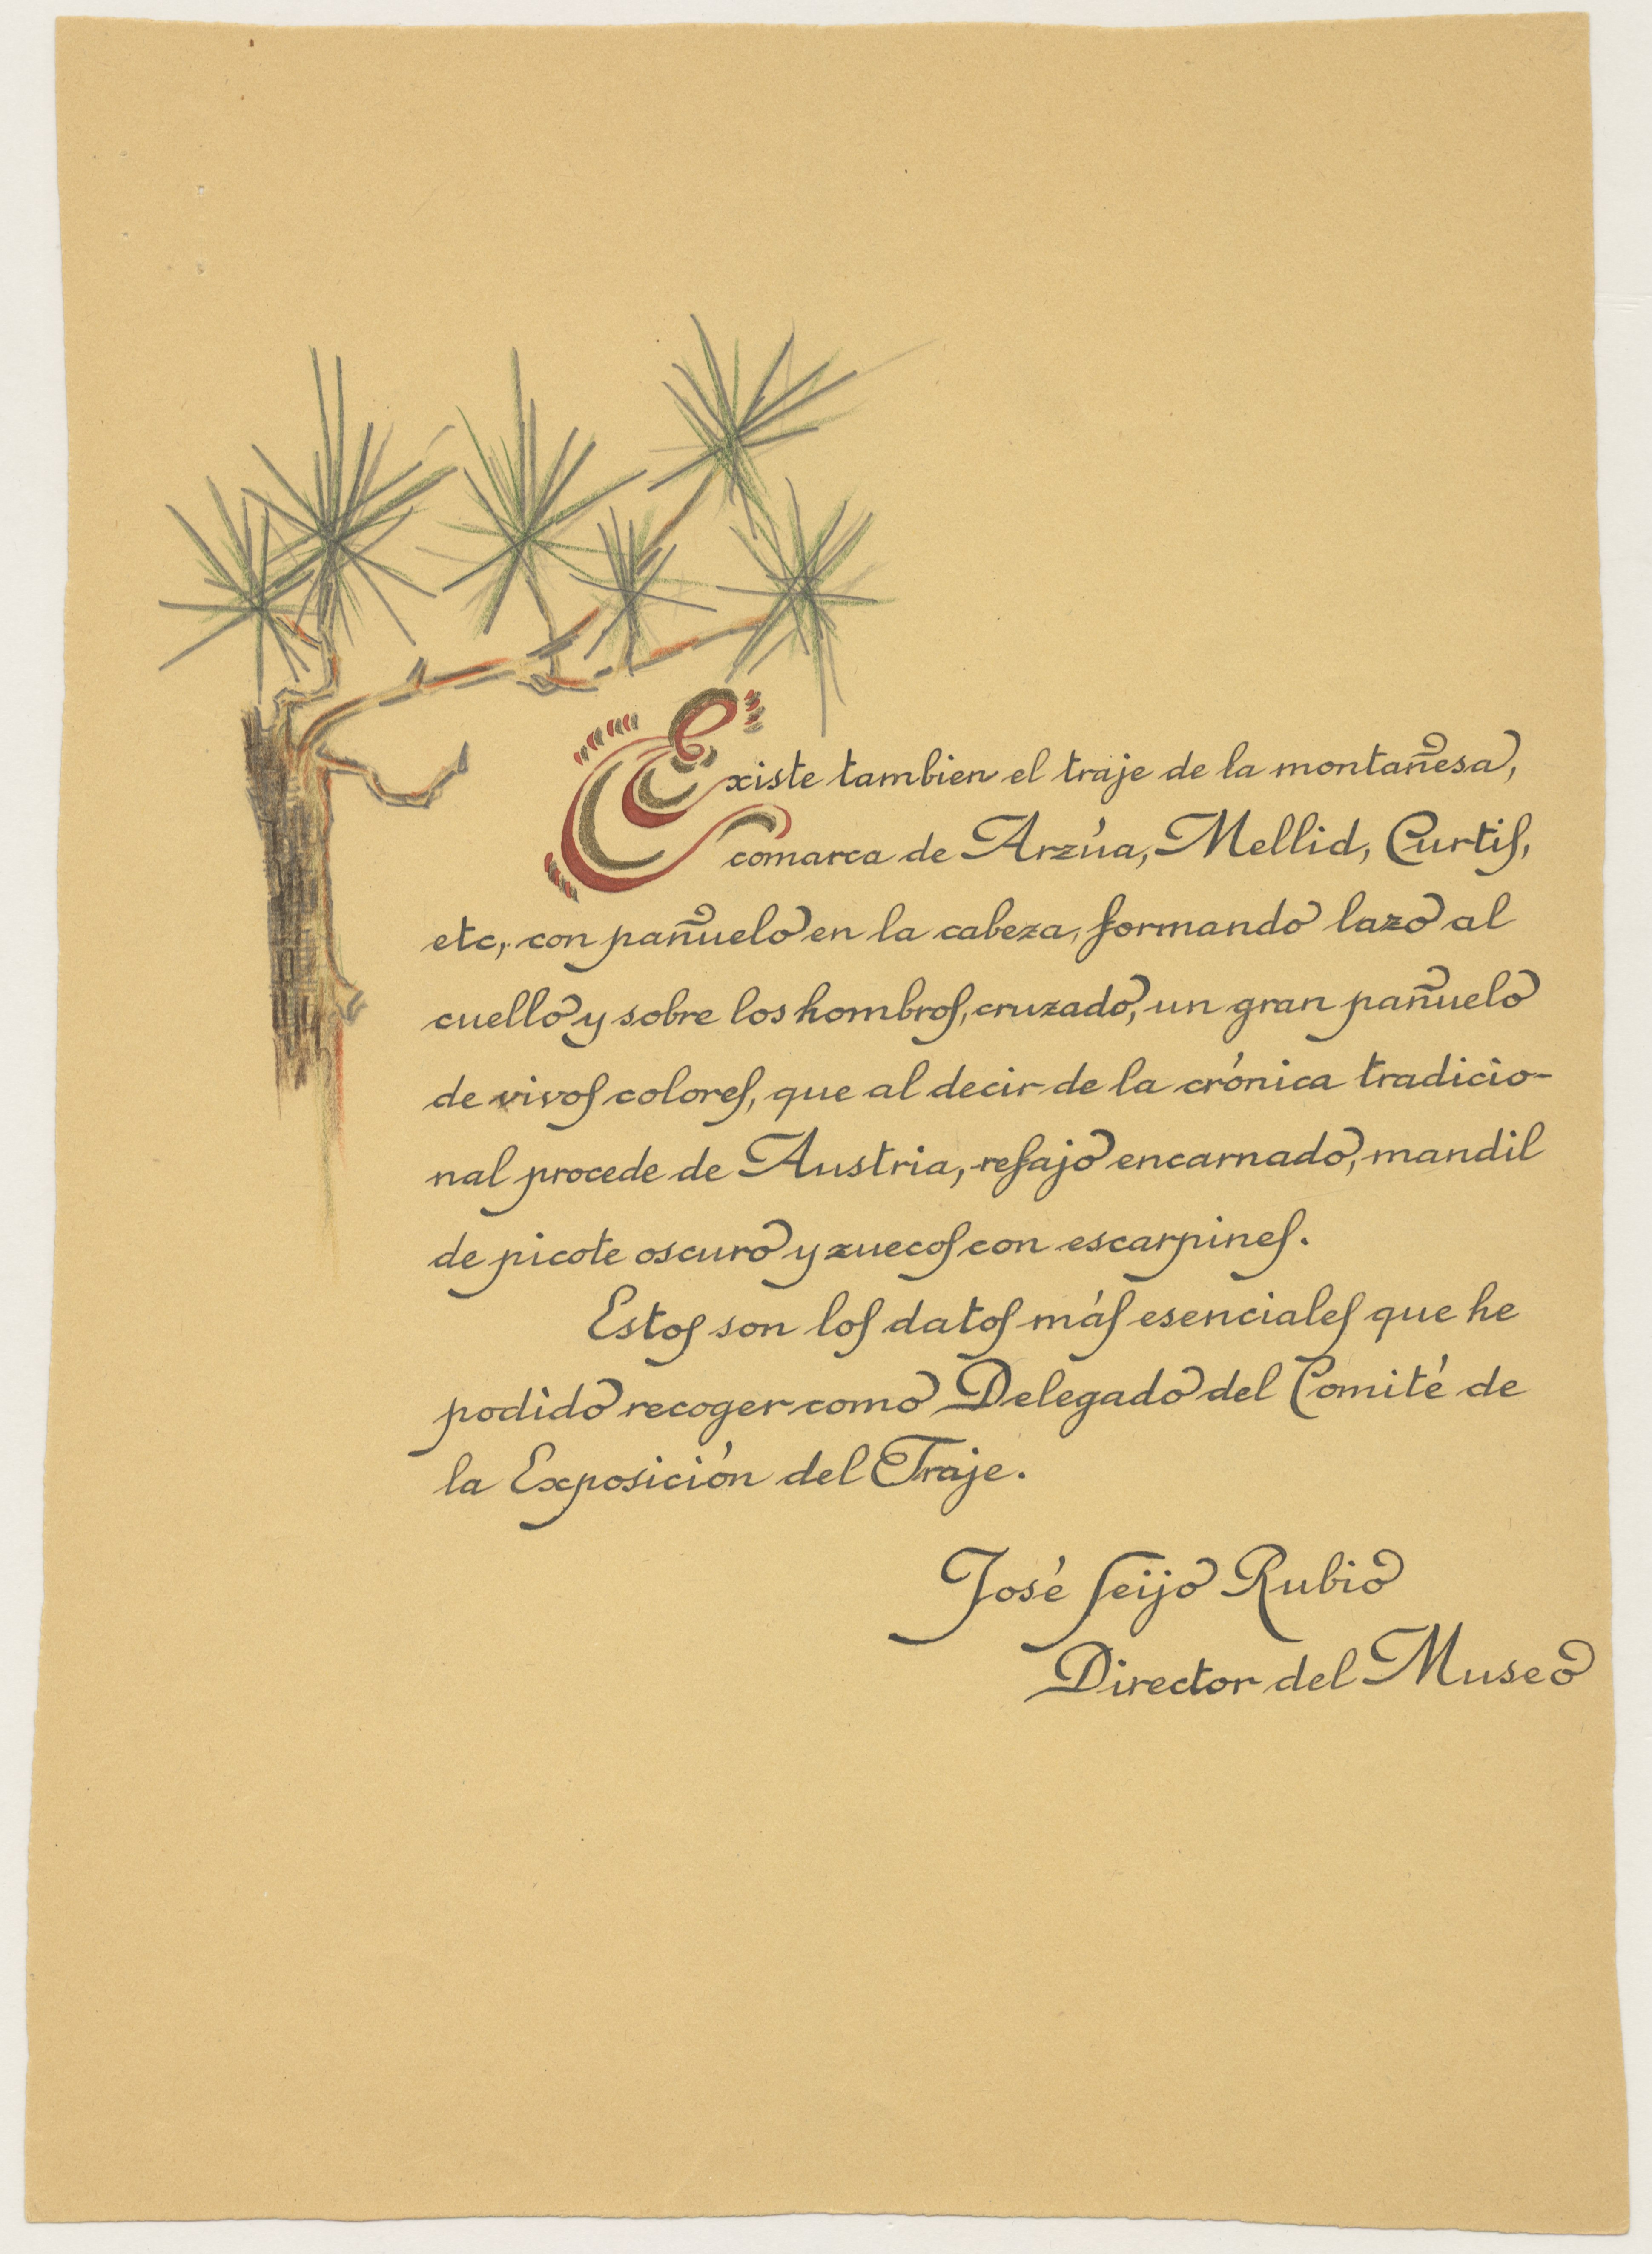 Existe tambien el traje de la montañesa,
comarca de Arzúa, Mellid, Curtis,
etc, con pañuelo en la cabeza, formando lazo al
cuello y sobre los hombros, cruzado, un gran pañuelo
de vivos colores, que al decir de la crónica tradicio-
nal procede de Austria, refajo encarnado, mandil
de picote oscuro y zuecos con escarpines.
Estos son los datos más esenciales que he
podido recoger como Delegado del Comité de
la Exposición del Traje.
José Seijo Rubio
Director del Museo